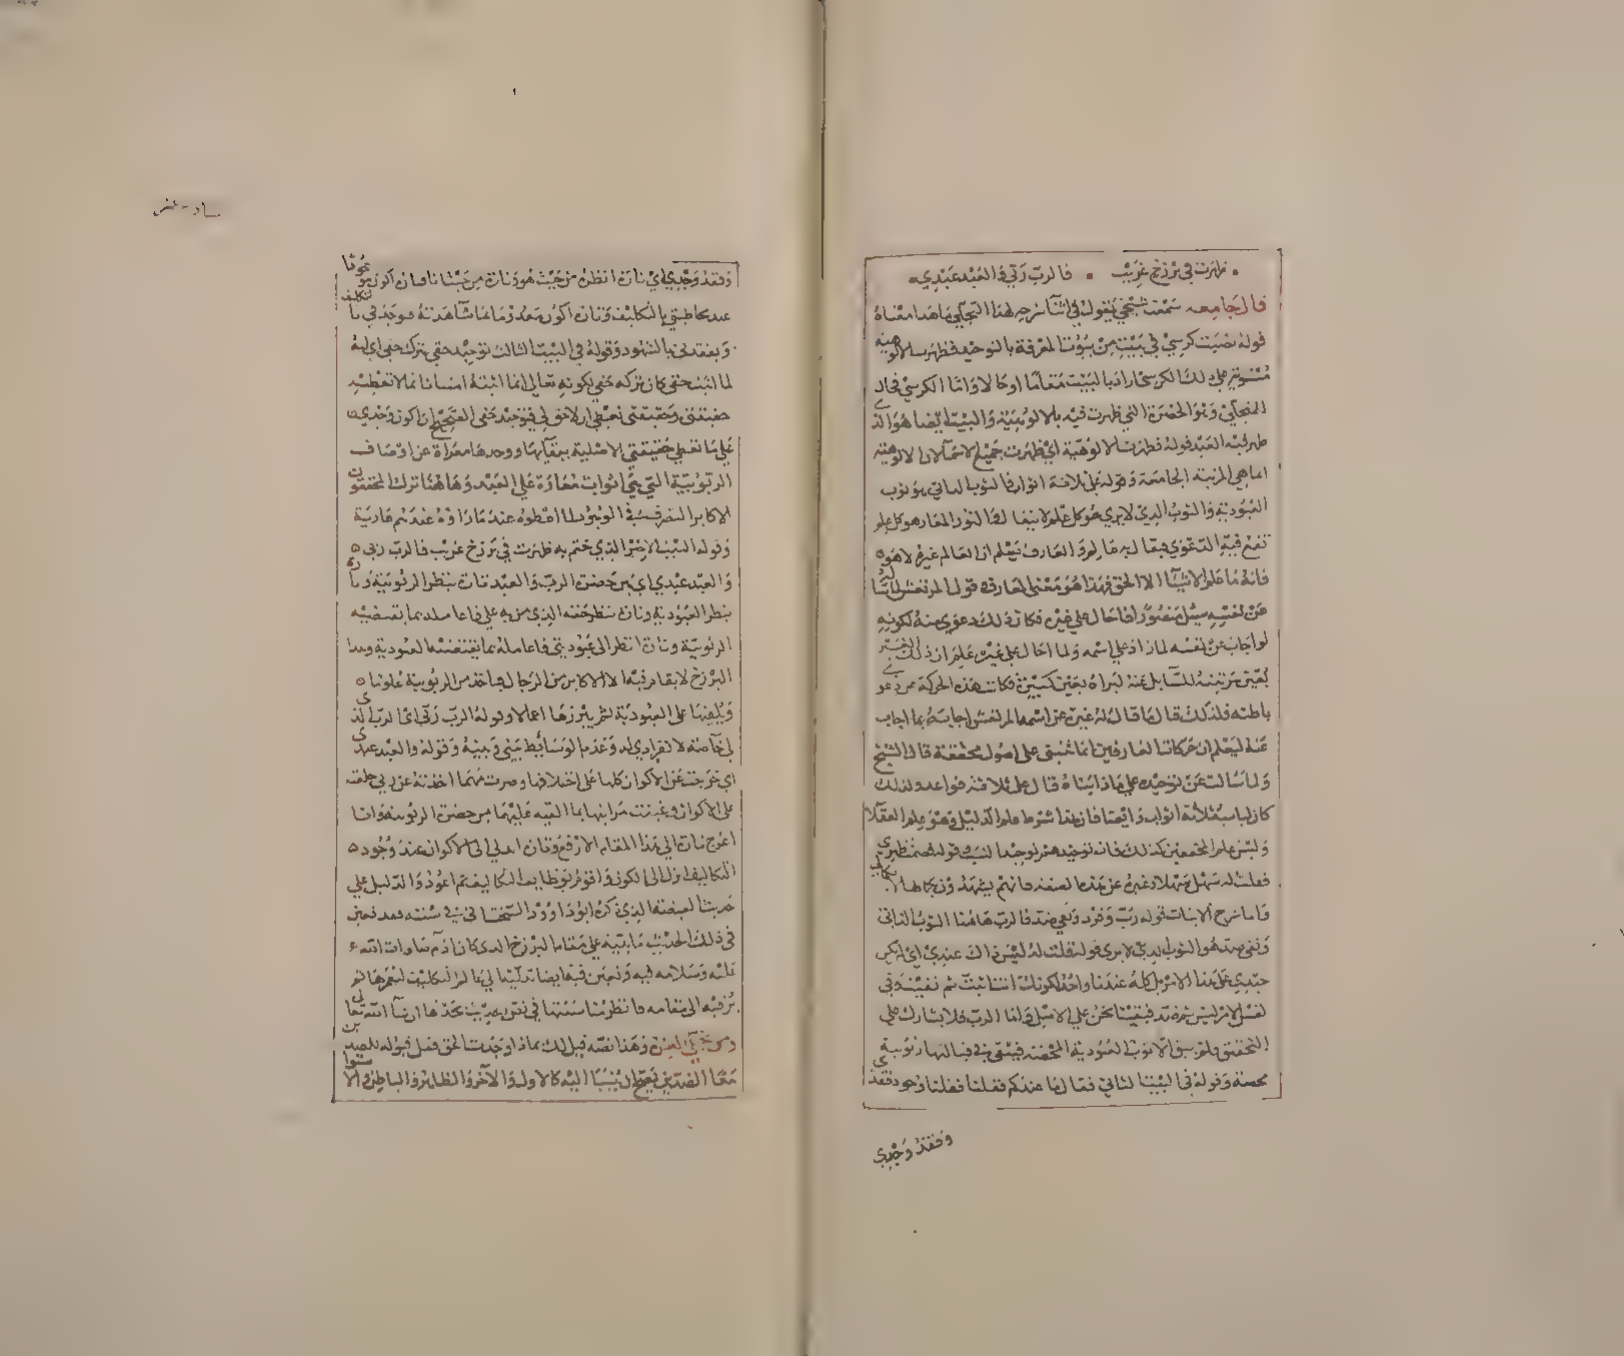 ظهرت في برزخ غريب • فالرب ربي والعبد عبدي
قال جامعه سمعت شيخي يقول في اثنا شرحه لهذا التجلي ما هذا معناه
قوله نصبت كرسي في بيت من بيوت المعرفة بالتوحيد فظهرت الالوهية
مستوية على ذلك الكرسي اراد بالبيت مقاما او حالا واما الكرسي فحال
المتجلي وهو الحضرة التي ظهرت فيه بالالوهية والبيت ايضا هو الذي
ظهر فيه العبد قوله فظهرت الالوهية اي ظهرت جميع الاسما لان الالوهية
انما هي المرتبة الجامعة وقوله على ثلاثة اثواب فالثوب الذاتي هو ثوب
العبودية والثوب الذي لا يرى هو كل علم لا ينقال والثوب المعار هو كل علم
تقع فيه الدعوى فيقال فلان عالم والعارف يعلم ان العالم غيره لا هو
فانه ما علم الاشيا الا الحق فهذا هو معنى المعار قوله قول المرتعش لما
عن نفسه سيل منصورا فاحال على غيره فكان ذلك دعوى منه لكونه
لو اجاب عن نفسه لما زاد على اسمه ولما احال على غيره علم ان ذلك الغير
يعين مرتبته للسايل عنه ليراه بعين كبيرة فكانت هذه الحركة عن دعوى
باطنه فلذلك قال لما قال له غيره عن اسمه المرتعش اجابة بما اجاب
عنه ليعلم ان حركات العارفين انما تنبني على اصول محققة قال الشيخ
ولما سالت عن توحيده على ماذا بناه قال على ثلاثة قواعد ولذلك
كان لباسه ثلاثة اثواب وايضا فان هذا شرط علم الدليل وهو علم العقلا
وليس علم المحققين كذلك فانه توحيدهم توحيد النسب قوله قصمت ظهري
فقلت له سهل بن سهل وغيره عن هذه الصفة فانهم يشهدون بكمالها
واما شرح الابيات قوله رب وفرد ونفي ضد فالرب هاهنا الثوب الذاتي
ونفي ضد هو الثوب الذي لا يرى قوله فقلت له ليس ذاك عندي اي ليس
عندي على هذا الامر بل كله عندنا واحد لكونك انت اثبت ثم نفيت وفي
نفس الامر ليس ثم ضد فبقينا نحن على الاصل واما الرب فلا يشارك على
التحقيق فلم يبق الا ثوب العبودية المحضة فيبقى في قبالتها ربوبية
محضة وقوله في البيت الثاني فقال ما عندكم فقلنا فقلنا وجود فقدي
وفقد وجدي
وفقد وجدي اي تارة انظره من حيث هو وتارة من حيث انا فتارة اكون موجودا
عند مخاطبتي بالتكليف وتارة اكون معدوما بما شاهدته فيوجدني بالتكليف
ويفقدني بالشهود وقوله في البيت الثالث توحيد حقي بترك حقي اي انه
لما اثبت حقي كان تركه حقي لكونه تعالى انما اثبته امتنانا لا تعطيه
حقيقتي وحقيقتي تعطي ان لا حق لي فتوحيد حقي الصحيح ان اكون وحدي
على ما تعطي حقيقتي الاصلية ببقائها ووحدها معراة عن اوصاف
الربوبية التي هي اثواب معارة على العبد وهاهنا ترك المحققون
الاكابر التصرف في الوجود لما اعطوه عندما راوه عندهم عارية
وقوله البيت الاخير الذي ختم به ظهرت في برزخ غريب فالرب ربي
والعبد عبدي اي بين حضرة الرب والعبد تارة ينظر الربوبية وتارة
ينظر العبودية وتارة ينظر حقه الذي من به علي فاعامله بما تقتضيه
الربوبية وتارة انظر الى عبوديتي فاعامله بما تقتضيه العبودية وهذا
البرزخ لا يقام فيه الا الاكابر من الرجال فياخذ من الربوبية علوما
ويلقيها على العبودية ثم يبرزها اعمالا وقوله الرب ربي اي الرب الذي
لي خاصة لانفرادي له وعدم الوسائط بيني وبينه وقوله والعبد عبدي
اي خرجت عن الاكوان كلها على اختلافها وصرت مهما اخذته عن ربي خلعته
على الاكوان وعينت مراتبها بما القيه عليها من حضرة الربوبية وانا
اعرج تارة الى هذا المقام الارفع وتارة اتدلى الى الاكوان عند وجود
التكاليف انزل الى الكون واقوم بوظايف التكاليف ثم اعود والدليل على
مرتبة القبضة الذي ذكره ابو داوود السختاني في سننه فقد تعين
في ذلك الحديث ما ينبه على مقام البرزخ الذي كان ادم صلوات الله
عليه وسلامه فيه وتعين فيه ايضا تدليه الى عالم التكليف لتعمرها ثم
ترقيه الى مقامه فانظر مناسبتها في نص حديث تجدها ان شا الله تعالى
ومن تجلي العزة وهذا نصه قيل لك بماذا وجدت الحق فقل بقبوله للضدين
معا الضدين يصح ان ينسبا اليه كالاول والاخر والظاهر والباطن والاستوا